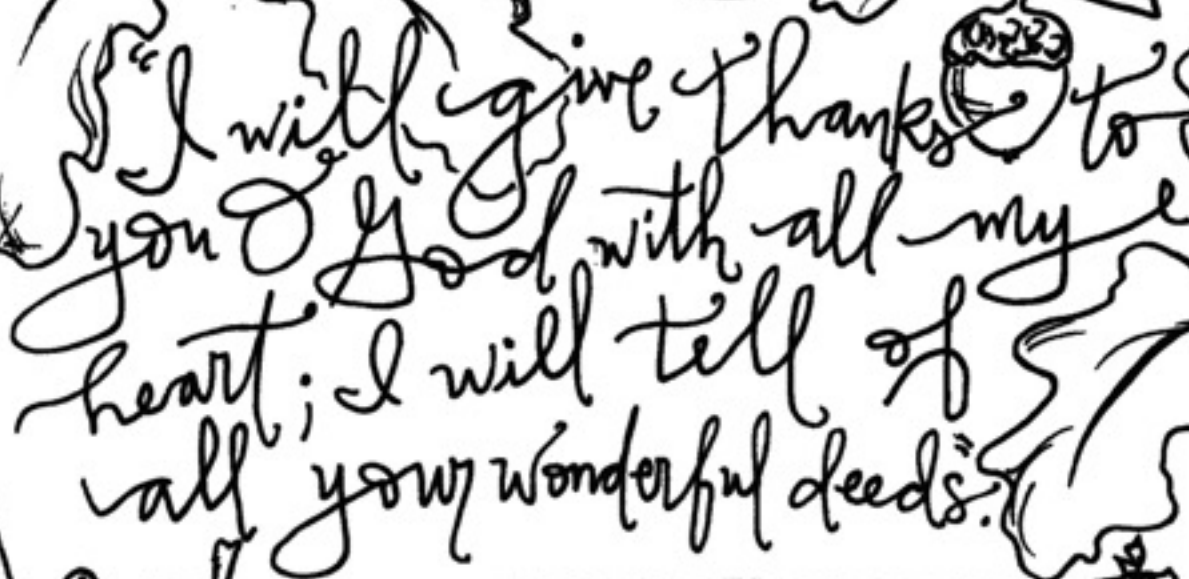 "I will give thanks to
you O God with all my
heart; I will tell of
all your wonderful deeds".